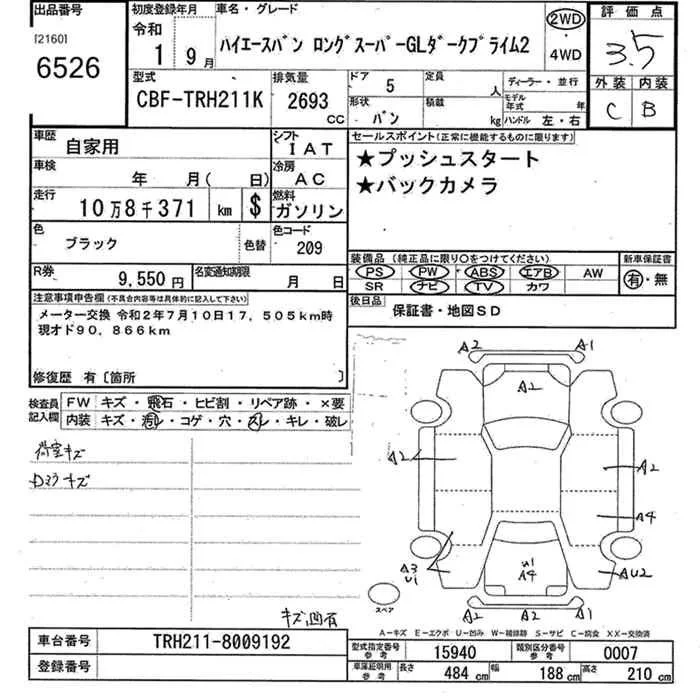 出品番号
[2160]
6526
初度登録年月
令和
1 9月
車名・グレード
ハイエースバン ロングスーパーGLダークプライム2
2WD
・
4WD
評価点
3.5
外装 内装
C B
型式
CBF-TRH211K
排気量
2693 cc
ドア 5
形状 バン
定員 人
積載 kg
ディーラー・並行
モデル年式 年
ハンドル 左・右
車歴 自家用
シフト IAT
車検 年 月( 日)
冷房 AC
走行 10万8千371 km $
燃料 ガソリン
色 ブラック 色替
色コード 209
R券 9,550円
名変通知期限 月 日
セールスポイント(正常に機能するものに限ります)
★プッシュスタート
★バックカメラ
装備品(純正品に限り○をつけてください)
PS PW ABS エアB AW
SR ナビ TV カワ
新車保証書
有・無
後日品 保証書・地図SD
注意事項申告欄(不具合内容等は具体的に記入して下さい)
メーター交換 令和2年7月10日17,505km時
現オド90,866km
修復歴 有〔箇所 〕
検査員記入欄
FW キズ・飛石・ヒビ割・リペア跡・×要
内装 キズ・汚レ・コゲ・穴・スレ・キレ・破レ
荷室キズ
Dミラキズ
キズ凹有
A2 A1
A2
A2 A2
A4
A3
U1
U1
A4
AU2
スペア
A1 A2 A1
A-キズ E-エクボ U-凹み W-補修跡 S-サビ C-腐食 XX-交換済
車台番号 TRH211-8009192
登録番号
型式指定番号 参考 15940
類別区分番号 参考 0007
車庫証明用 参考 長さ 484 cm 幅 188 cm 高さ 210 cm